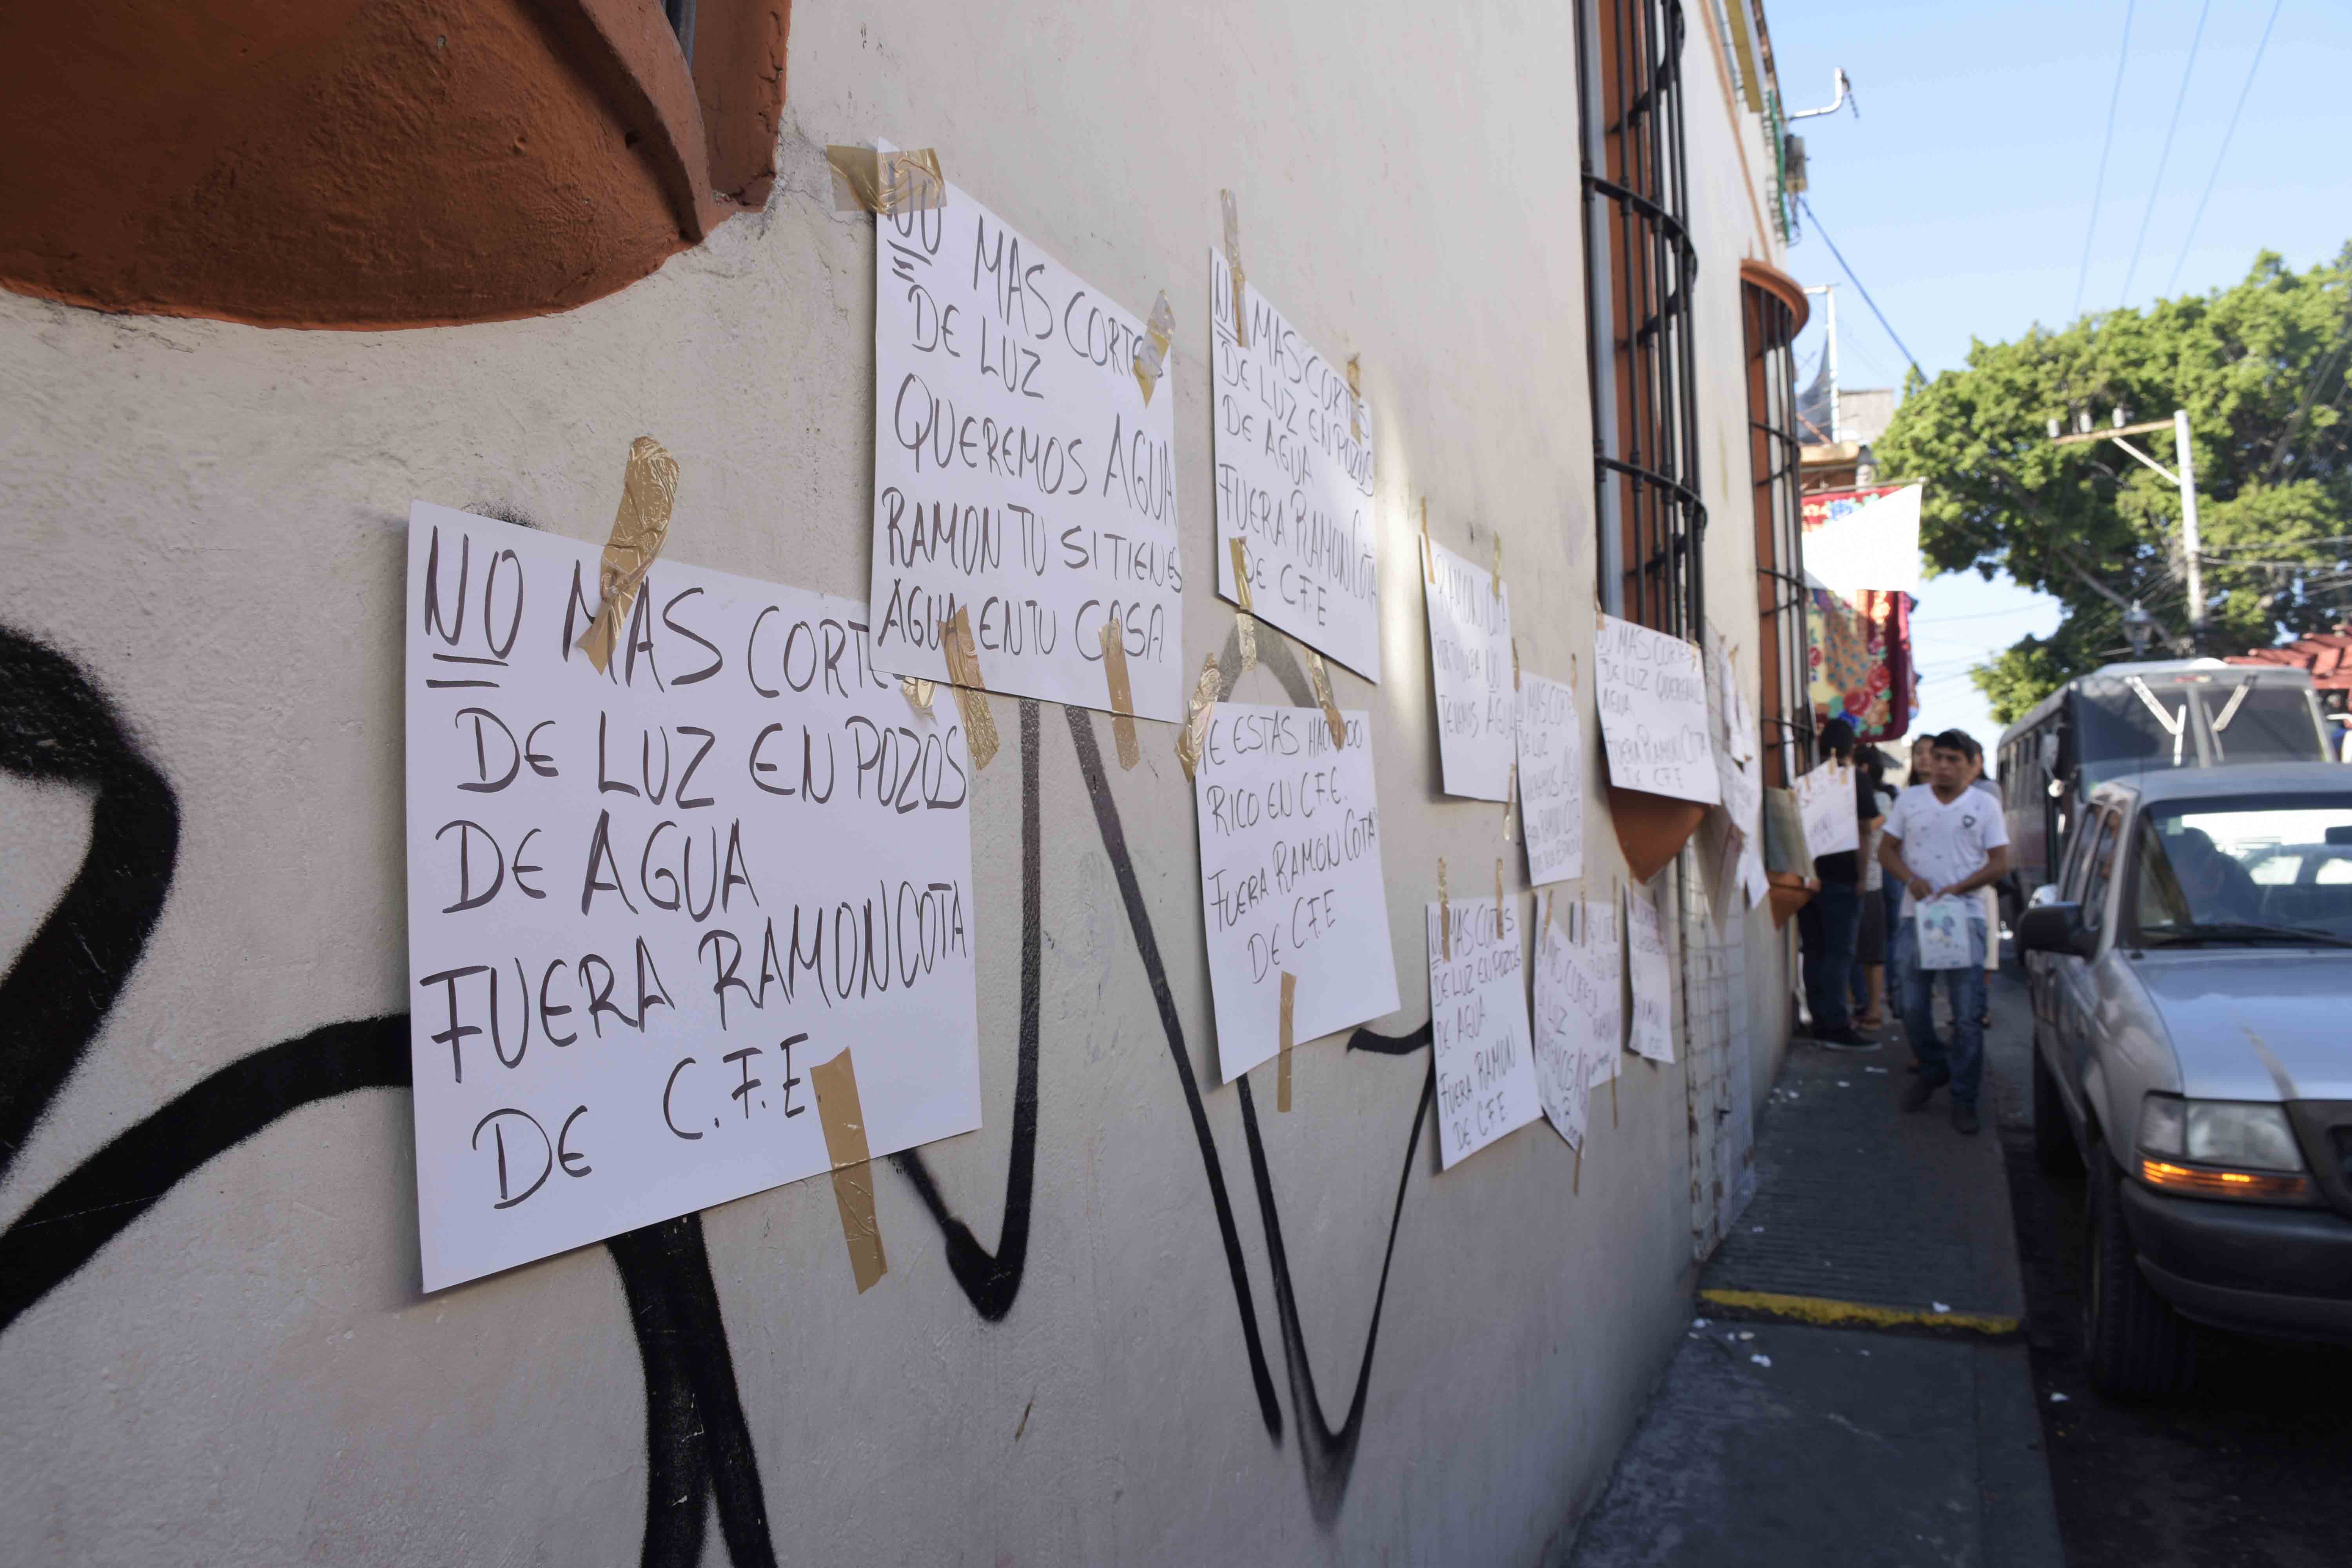 NO MAS CORTE
DE LUZ EN POZOS
DE AGUA
FUERA RAMON COTA
DE C.F.E
NO MAS CORTES
DE LUZ
QUEREMOS AGUA
RAMON TU SI TIENES
AGUA EN TU CASA
NO MAS CORTES
DE LUZ EN POZOS
DE AGUA
FUERA RAMON COTA
DE C.F.E
TE ESTAS HACIENDO
RICO EN C.F.E.
FUERA RAMON COTA
DE C.F.E
RAMON COTA
POR TU CULPA NO
TENEMOS AGUA
MAS CORTES
DE LUZ
AGUA
RAMON COTA
NO MAS CORTES
DE LUZ QUEREMOS
AGUA
FUERA RAMON COTA
DE CFE
NO MAS CORTES
DE LUZ EN POZOS
DE AGUA
FUERA RAMON
DE CFE
MAS CORTES
DE LUZ